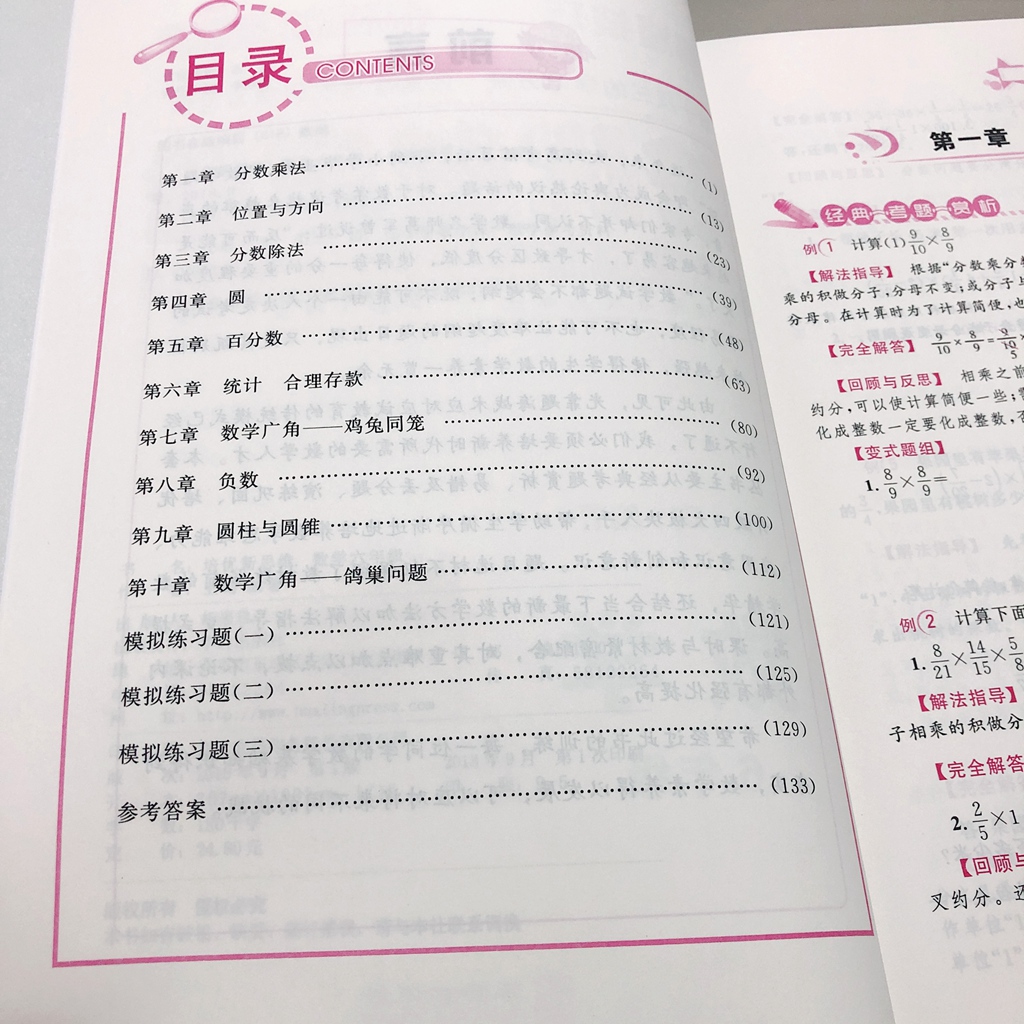 目录 CONTENTS
第一章 分数乘法 (1)
第二章 位置与方向 (13)
第三章 分数除法 (23)
第四章 圆 (39)
第五章 百分数 (48)
第六章 统计 合理存款 (63)
第七章 数学广角——鸡兔同笼 (80)
第八章 负数 (92)
第九章 圆柱与圆锥 (100)
第十章 数学广角——鸽巢问题 (112)
模拟练习题(一) (121)
模拟练习题(二) (125)
模拟练习题(三) (129)
参考答案 (133)
第一章
经典考题赏析
例1 计算(1) 9/10×8/9
【解法指导】 根据“分数乘分数
乘的积做分子,分母不变;或分子与
分母。在计算时为了计算简便,也
【完全解答】 9/10×8/9=
【回顾与反思】 相乘之前
约分,可以使计算简便一些;
化成整数一定要化成整数,否
【变式题组】
1. 8/9×8/9=
例2 计算下面
1. 8/21×14/15×5/8
【解法指导】
子相乘的积做分
【完全解答
2. 2/5×1
【回顾与
叉约分。还